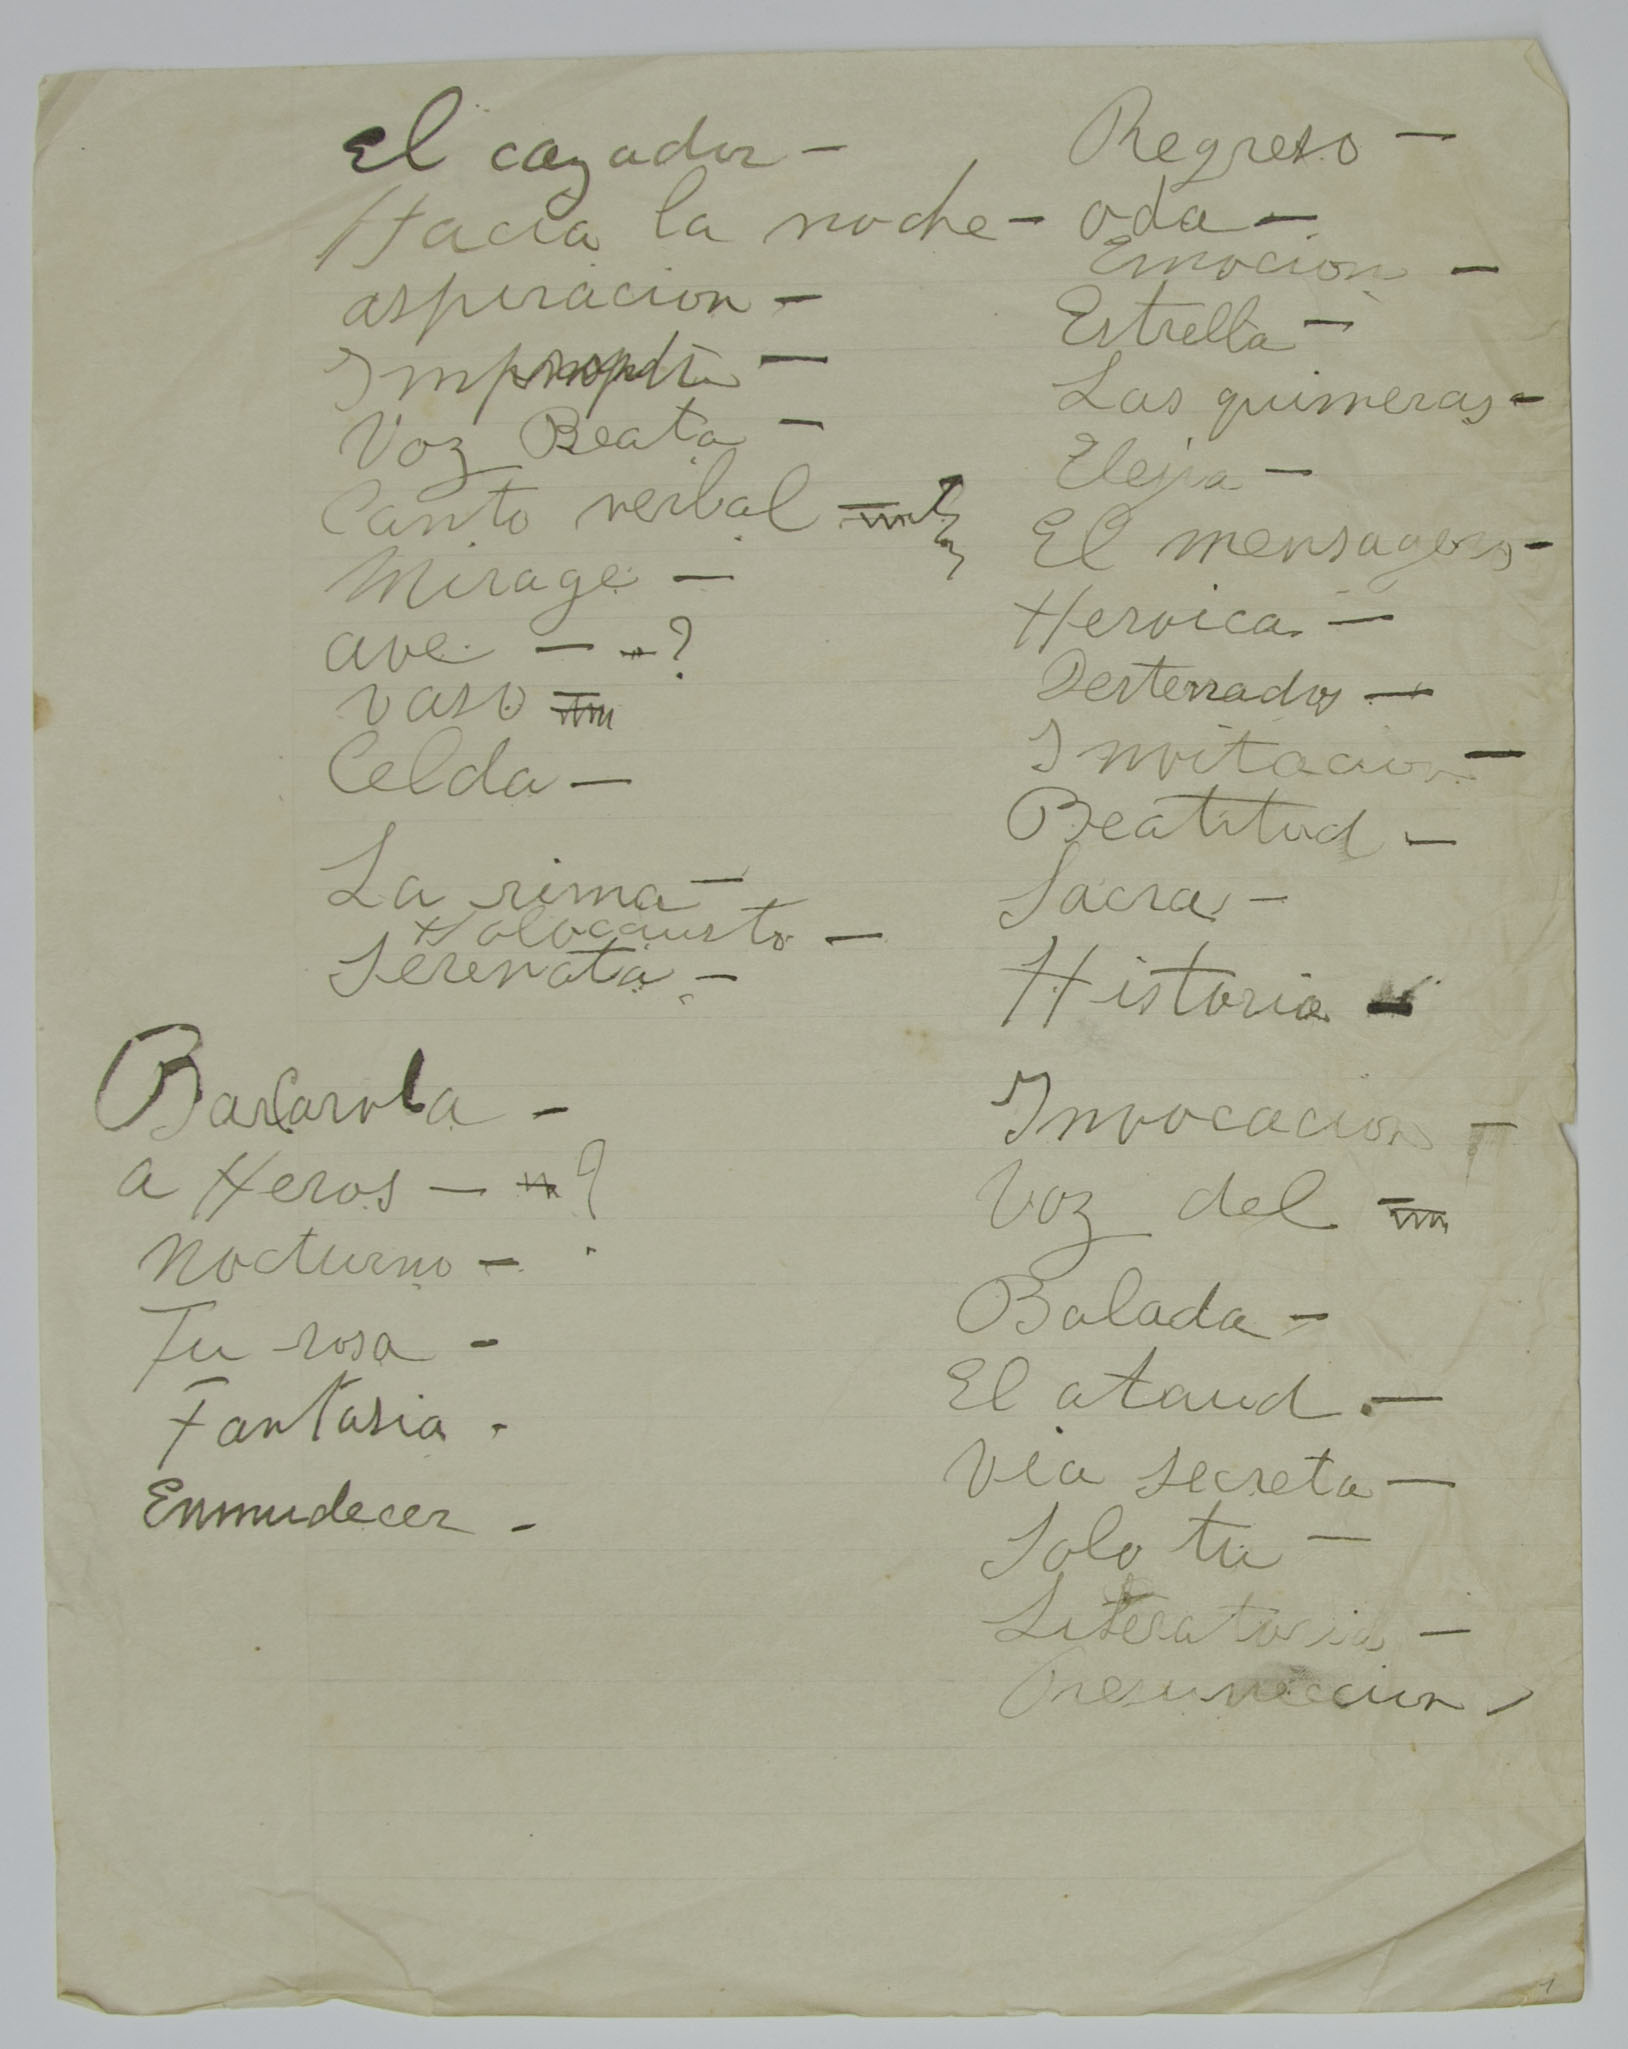 El cazador —
Hacia la noche —
aspiracion —
Voz Beata —
Canto verbal —
Mirage —
ave — ?
vaso —
Celda —
La rima —
Holocausto —
Serenata —
Barcarola —
a Heros — ?
Nocturno —
Tu rosa -
Fantasia -
Enmudecer -
Regreso —
oda —
Emocion —
Estrella —
Las quimeras —
Elejia —
El mensagero —
Heroica —
Desterrados —
Invitacion —
Beatitud —
Sacra —
Historia —
Invocacion —
Voz del —
Balada —
El ataud —
Via secreta —
Solo tu —
1